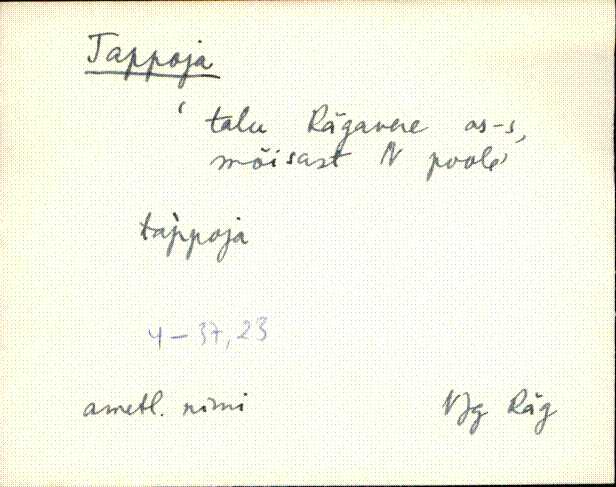 Tappoja
‘ talu Rägavere as-s,
mõisast N poole’
tap̀poja
4 – 37, 23
ametl. nimi VJg Räg